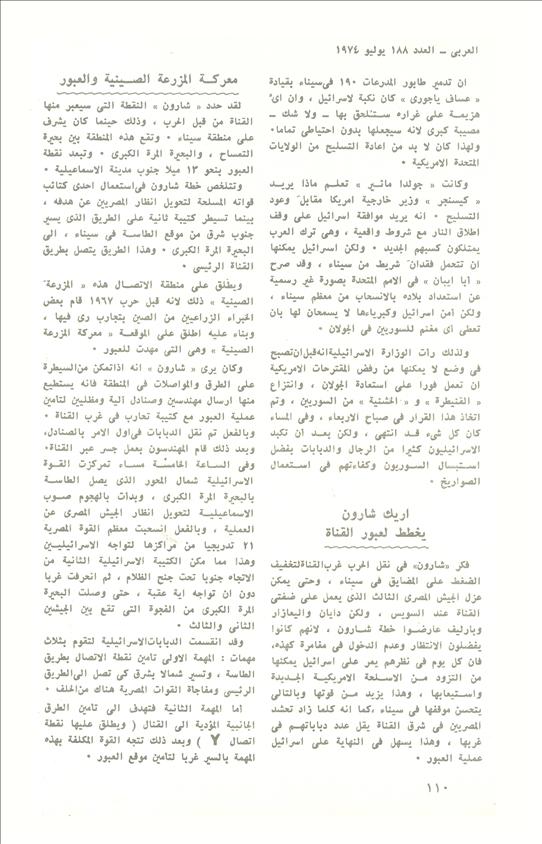 العربى ــ العدد ١٨٨ يوليو ١٩٧٤
ان تدمير طابور المدرعات ١٩٠ فى سيناء بقيادة
« عساف ياجورى » كان نكبة لاسرائيل ، وان اى
هزيمة على غراره ستلحق بها ــ ولا شك ــ
مصيبة كبرى لانه سيجعلها بدون احتياطى تماما ٠
ولهذا كان لا بد من اعادة التسليح من الولايات
المتحدة الامريكية ٠
وكانت « جولدا مائير » تعلم ماذا يريد
« كيسنجر » وزير خارجية امريكا مقابل وعود
التسليح ٠ انه يريد موافقة اسرائيل على وقف
اطلاق النار مع شروط واقعية ، وهى ترك العرب
يمتلكون كسبهم الجديد ٠ ولكن اسرائيل يمكنها
ان تتحمل فقدان شريط من سيناء ، وقد صرح
« أبا ايبان » فى الامم المتحدة بصورة غير رسمية
عن استعداد بلاده بالانسحاب من معظم سيناء ،
ولكن أمن اسرائيل وكبرياءها لا يسمحان لها بان
تعطى اى مغنم للسوريين فى الجولان ٠
ولذلك رأت الوزارة الاسرائيلية انه قبل ان تصبح
فى وضع لا يمكنها من رفض المقترحات الامريكية
ان تعمل فورا على استعادة الجولان ، وانتزاع
« القنيطرة » و « الخشنية » من السوريين ، وتم
اتخاذ هذا القرار فى صباح الاربعاء ، وفى المساء
كان كل شىء قد انتهى ، ولكن بعد ان تكبد
الاسرائيليون كثيرا من الرجال والدبابات بفضل
استبسال السوريون وكفاءتهم فى استعمال
الصواريخ ٠
اريك شارون
يخطط لعبور القناة
فكر «شارون» فى نقل الحرب غرب القناة لتخفيف
الضغط على المضايق فى سيناء ، وحتى يمكن
عزل الجيش المصرى الثالث الذى يعمل على ضفتى
القناة عند السويس ، ولكن دايان واليعازار
وبارليف عارضوا خطة شارون ، لانهم كانوا
يفضلون الانتظار وعدم الدخول فى مغامرة كهذه،
فان كل يوم فى نظرهم يمر على اسرائيل يمكنها
من التزود من الاسلحة الامريكية الجديدة
واستيعابها ، وهذا يزيد من قوتها وبالتالى
يتحسن موقفها فى سيناء ،كما انه كلما زاد تحشد
المصريين فى شرق القناة يقل عدد دباباتهم فى
غربها ، وهذا يسهل فى النهاية على اسرائيل
عملية العبور ٠
معركة المزرعة الصينية والعبور
لقد حدد « شارون » النقطة التى سيعبر منها
القناة من قبل الحرب ، وذلك حينما كان يشرف
على منطقة سيناء ٠ وتقع هذه المنطقة بين بحيرة
التمساح ، والبحيرة المرة الكبرى ٠ وتبعد نقطة
العبور بنحو ١٣ ميلا جنوب مدينة الاسماعيلية ٠
وتتلخص خطة شارون فى استعمال احدى كتائب
قواته المسلحة لتحويل انظار المصريين عن هدفه ،
بينما تسيطر كتيبة ثانية على الطريق الذى يسير
جنوب شرق من موقع الطاسة فى سيناء ، الى
البحيرة المرة الكبرى ٠ وهذا الطريق يتصل بطريق
القناة الرئيسى ٠
ويطلق على منطقة الاتصال هذه « المزرعة
الصينية » ذلك لانه قبل حرب ١٩٦٧ قام بعض
الخبراء الزراعيين من الصين بتجارب رى فيها ،
وبناء عليه اطلق على الموقعة « معركة المزرعة
الصينية » وهى التى مهدت للعبور ٠
وكان يرى « شارون » انه اذا تمكن من السيطرة
على الطرق والمواصلات فى المنطقة فانه يستطيع
منها ارسال مهندسين وصنادل آلية ومظليين لتأمين
عملية العبور مع كتيبة تحارب فى غرب القناة ٠
وبالفعل تم نقل الدبابات فى اول الامر بالصنادل،
وبعد ذلك قام المهندسون بعمل جسر عبر القناة٠
وفى الساعة الخامسة مساء تمركزت القوة
الاسرائيلية شمال المحور الذى يصل الطاسة
بالبحيرة المرة الكبرى ، وبدأت بالهجوم صوب
الاسماعيلية لتحويل انظار الجيش المصرى عن
العملية ، وبالفعل انسحبت معظم القوة المصرية
٢١ تدريجيا من مراكزها لتواجه الاسرائيليين
وهذا مما مكن الكتيبة الاسرائيلية الثانية من
الاتجاه جنوبا تحت جنح الظلام ، ثم انحرفت غربا
دون ان تواجه اية عقبة ، حتى وصلت البحيرة
المرة الكبرى من الفجوة التى تقع بين الجيشين
الثانى والثالث ٠
وقد انقسمت الدبابات الاسرائيلية لتقوم بثلاث
مهمات : المهمة الاولى تأمين نقطة الاتصال بطريق
الطاسة ، وتسير شمالا بشرق كى تصل الى الطريق
الرئيسى ومفاجأة القوات المصرية هناك من الخلف ٠
أما المهمة الثانية فتهدف الى تأمين الطرق
الجانبية المؤدية الى القنال ( ويطلق عليها نقطة
اتصال Y ) وبعد ذلك تتجه القوة المكلفة بهذه
المهمة بالسير غربا لتأمين موقع العبور ٠
١١٠